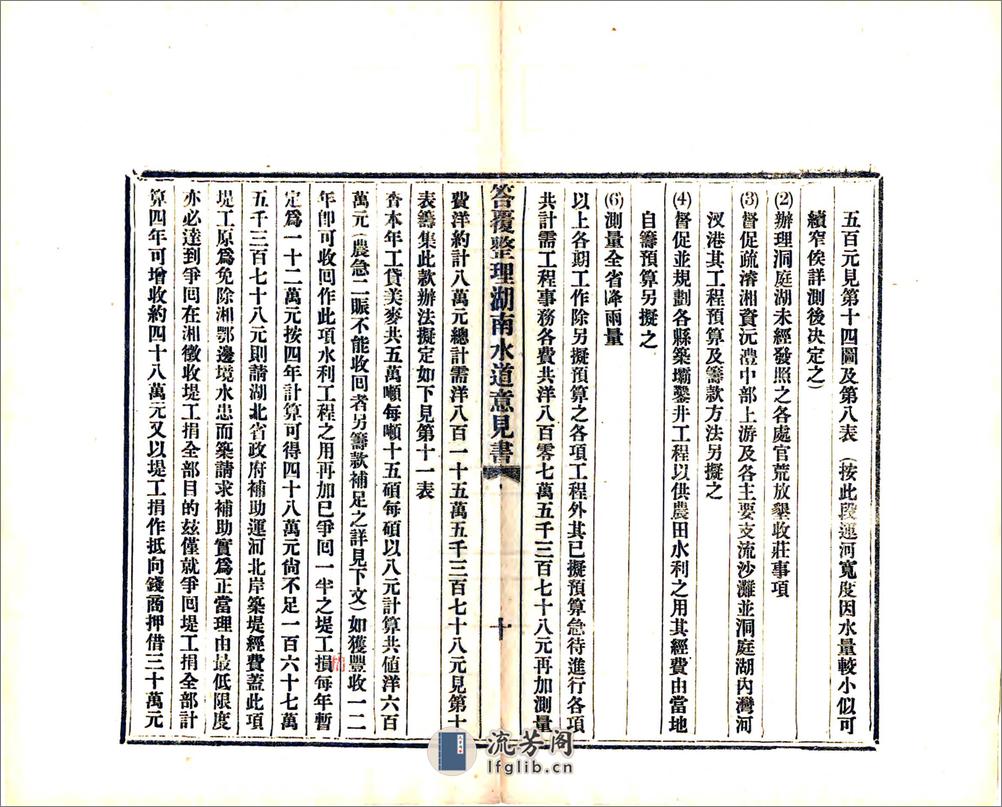 五百元見第十四圖及第八表（按此段運河寬度因水量較小似可
續窄俟詳測後决定之）
(2)辦理洞庭湖未經發照之各處官荒放墾收莊事項
(3)督促疏濬湘資沅澧中部上游及各主要支流沙灘並洞庭湖內灣河
汊港其工程預算及籌款方法另擬之
(4)督促並規劃各縣築壩鑿井工程以供農田水利之用其經費由當地
自籌預算另擬之
(6)測量全省降雨量
以上各期工作除另擬預算之各項工程外其已擬預算急待進行各項
共計需工程事務各費共洋八百零七萬五千三百七十八元再加測量
答覆整理湖南水道意見書
十
費洋約計八萬元總計需洋八百一十五萬五千三百七十八元見第十
表籌集此款辦法擬定如下見第十一表
查本年工貸美麥共五萬噸每噸十五碩每碩以八元計算共値洋六百
萬元（農急二賑不能收回者另籌款補足之詳見下文）如獲豐收一二
年卽可收回作此項水利工程之用再加已爭回一半之堤工損每年暫
定爲一十二萬元按四年計算可得四十八萬元尙不足一百六十七萬
五千三百七十八元則請湖北省政府補助運河北岸築堤經費蓋此項
堤工原爲免除湘鄂邊境水患而築請求補助實爲正當理由最低限度
亦必達到爭回在湘徵收堤工捐全部目的玆僅就爭囘堤工捐全部計
算四年可增收約四十八萬元又以堤工捐作抵向錢商押借三十萬元
流芳阁
lfglib.cn